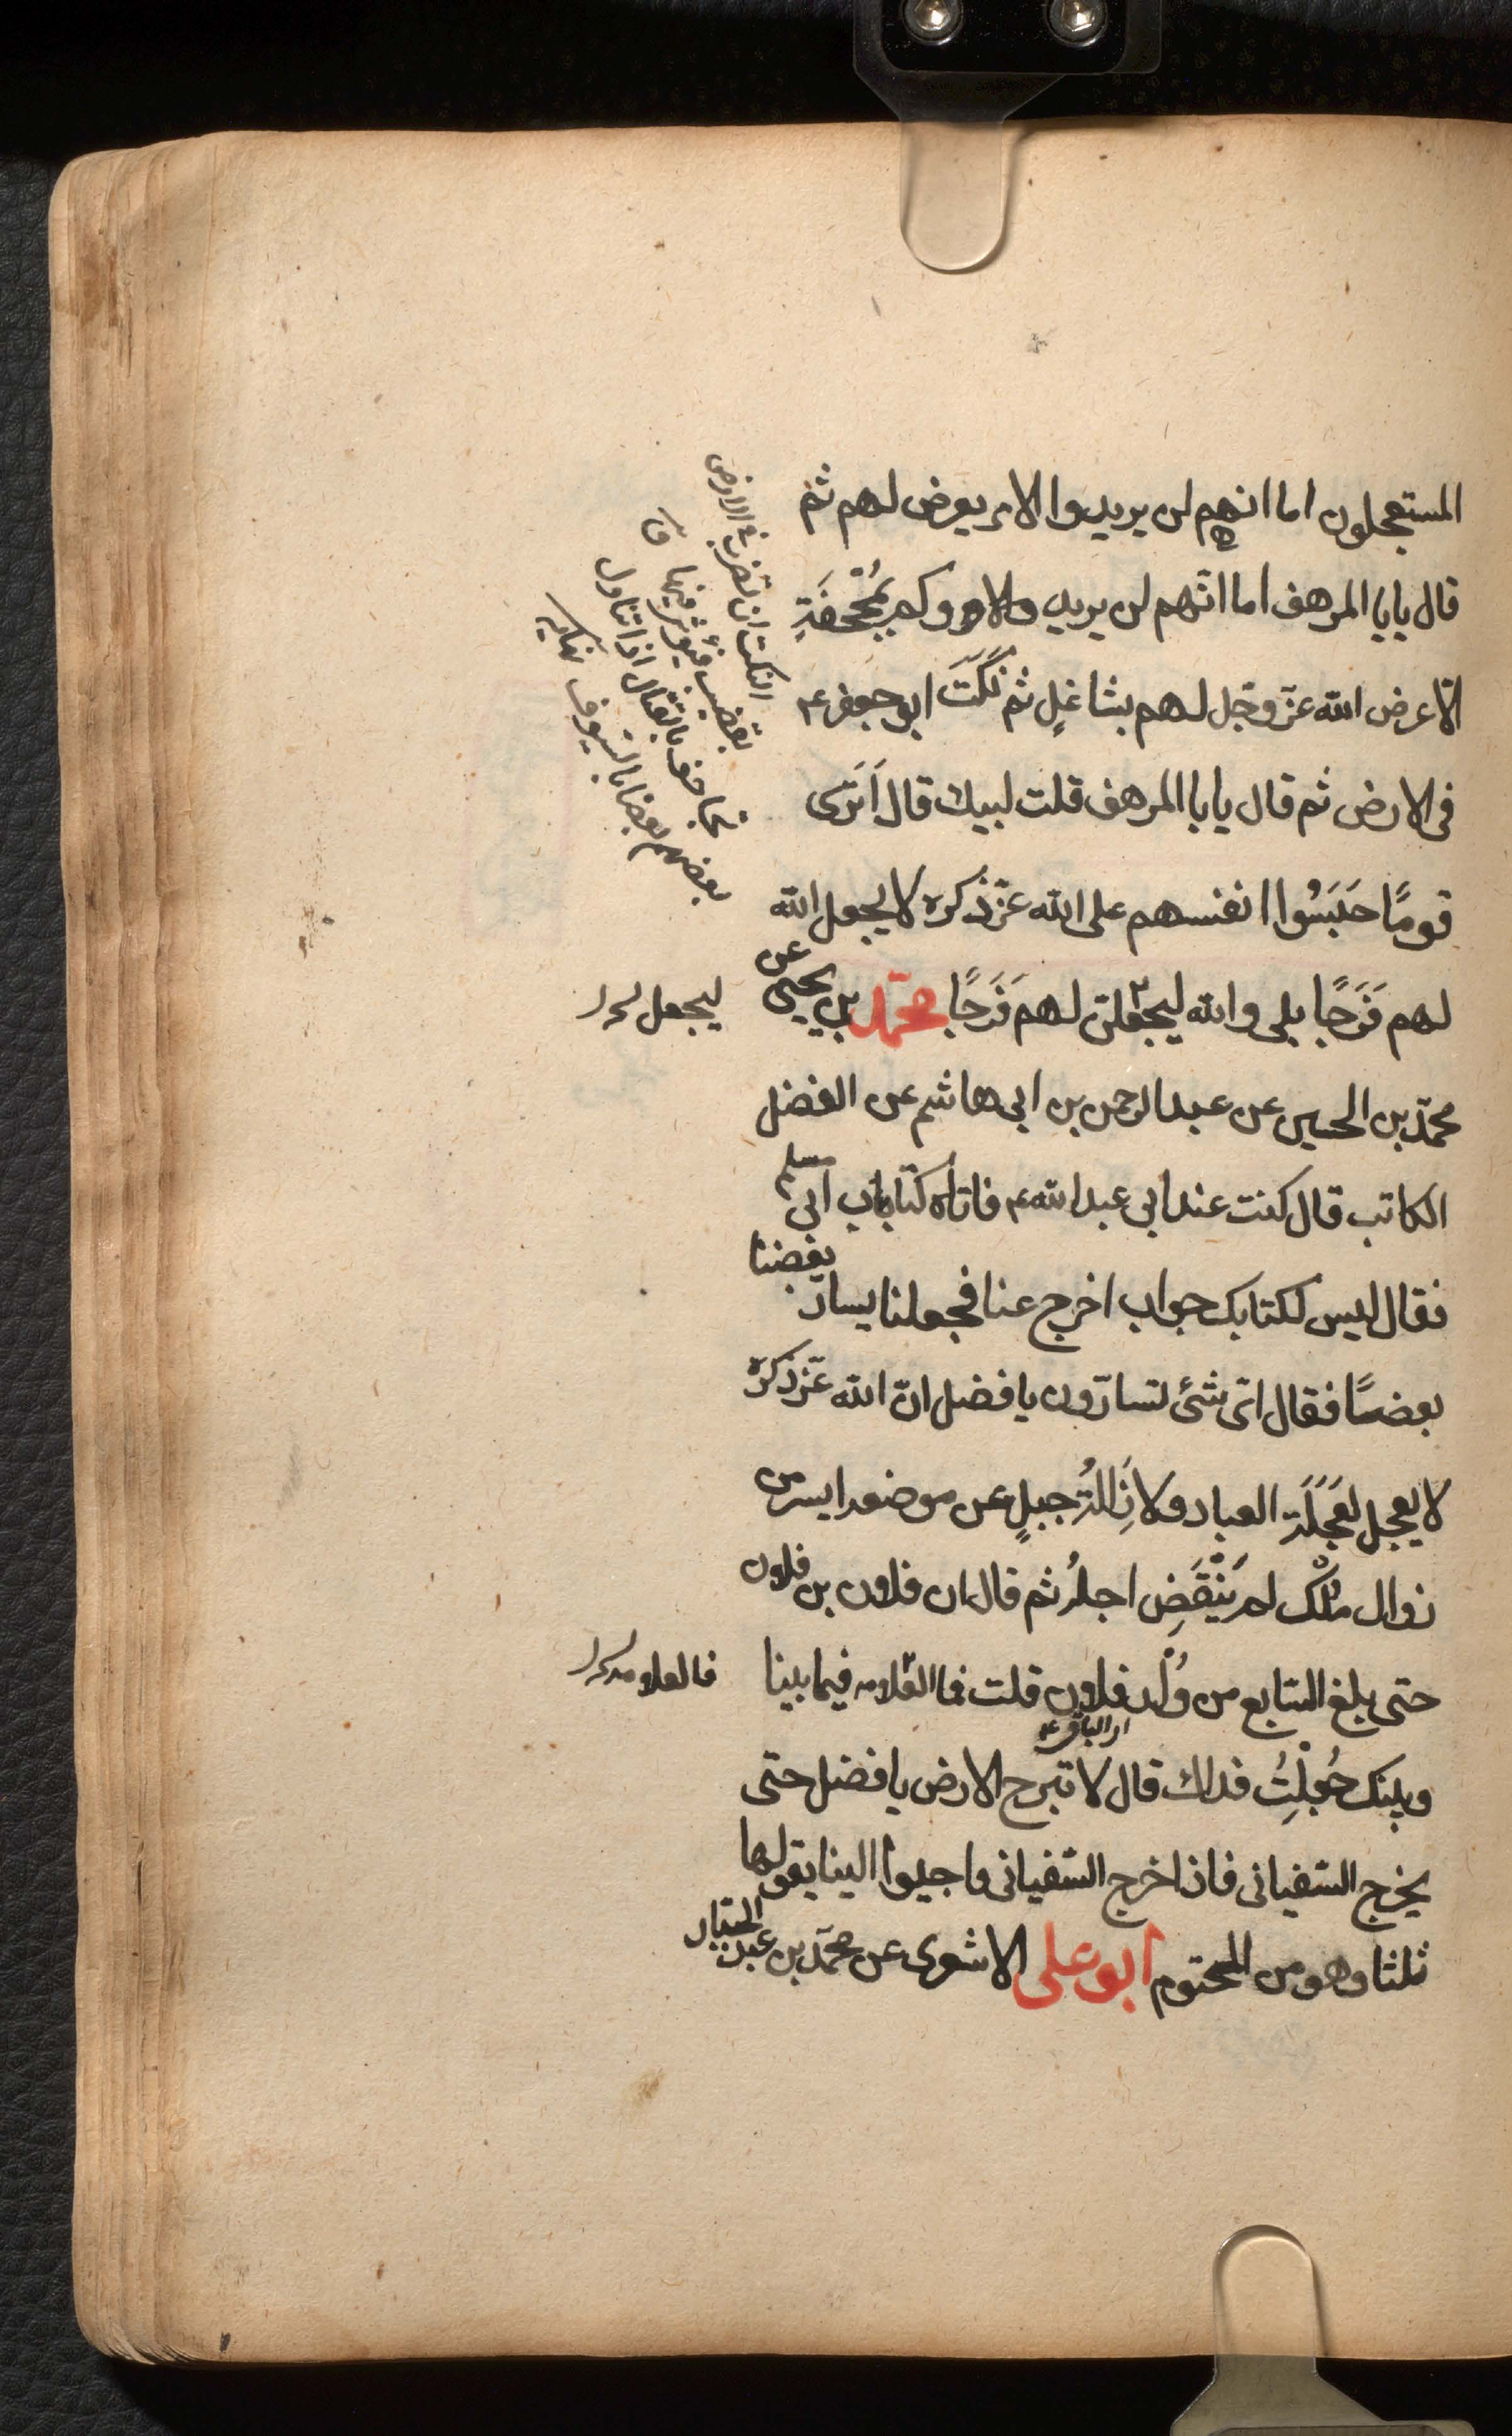 المستعجلون اما انهم لن يريدوا الا من يعرض لهم ثم
قال يابا المرهف اما انّهم لن يريدوكم بمُجْحِفَةٍ
الا عرض الله عزّ وجل لهم بشاغلٍ ثم نَكَتَ ابو جعفر ع
فى الارض ثم قال يابا المرهف قلت لبيك قال أَتَرى
قومًا حَبَسُوا انفسهم على الله عزّ ذكره لا يجعل الله
لهم فَرَجًا بلى والله ليجعلنّ لهم فَرَجًا محمّد بن يحيى عن
محمّد بن الحسين عن عبد الرحمن بن ابى هاشم عن الفضل
الكاتب قال كنت عند ابى عبد الله ع فاتاه كتاب ابى مسلم
فقال ليس لكتابك جواب اخرج عنا فجعلنا يسارّ بعضنا
بعضًا فقال اىّ شئ تسارّون يا فضل انّ الله عزّ ذكره
لا يعجل لعَجَلَة العباد ولاِزَالَةُ جبلٍ عن موضعه ايسر من
زوال مُلْك لم يَنْقَضِ اجلُه ثم قال ان فلان بن فلان
حتى بلغ السّابع من وُلْد فلان قلت فما العلامه فيما بيننا
وبينك جُعِلْتُ فداك قال لا تبرح الارض يا فضل حتى
يخرج السّفيانى فاذا خرج السّفيانى فاجيبوا الينا يقولها
ثلثا وهو من المحتوم ابو على الاشعرى عن محمّد بن عبد الجبّار
النكت ان تضرب فى الارض
بقضيب فيؤثر فيها ق
تجاحفوا بالقتال اذا تناول
بعضهم بعضا بالسيوف نهايه
ليجعل
فالعلامه